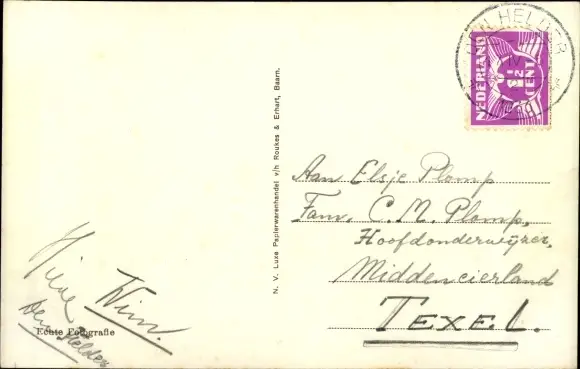 DEN HELDER
NEDERLAND
1½ CENT
N. V. Luxe Papierwarenhandel v/h Roukes & Erhart, Baarn.
Aan Elsje Plomp
Fam. C. M. Plomp,
Hoofdonderwijzer,
Middeneierland
TEXEL.
Wim.
Den Helder
Echte Fotografie